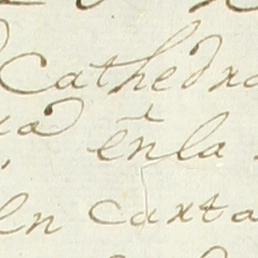 Cathedra
en la
en carta